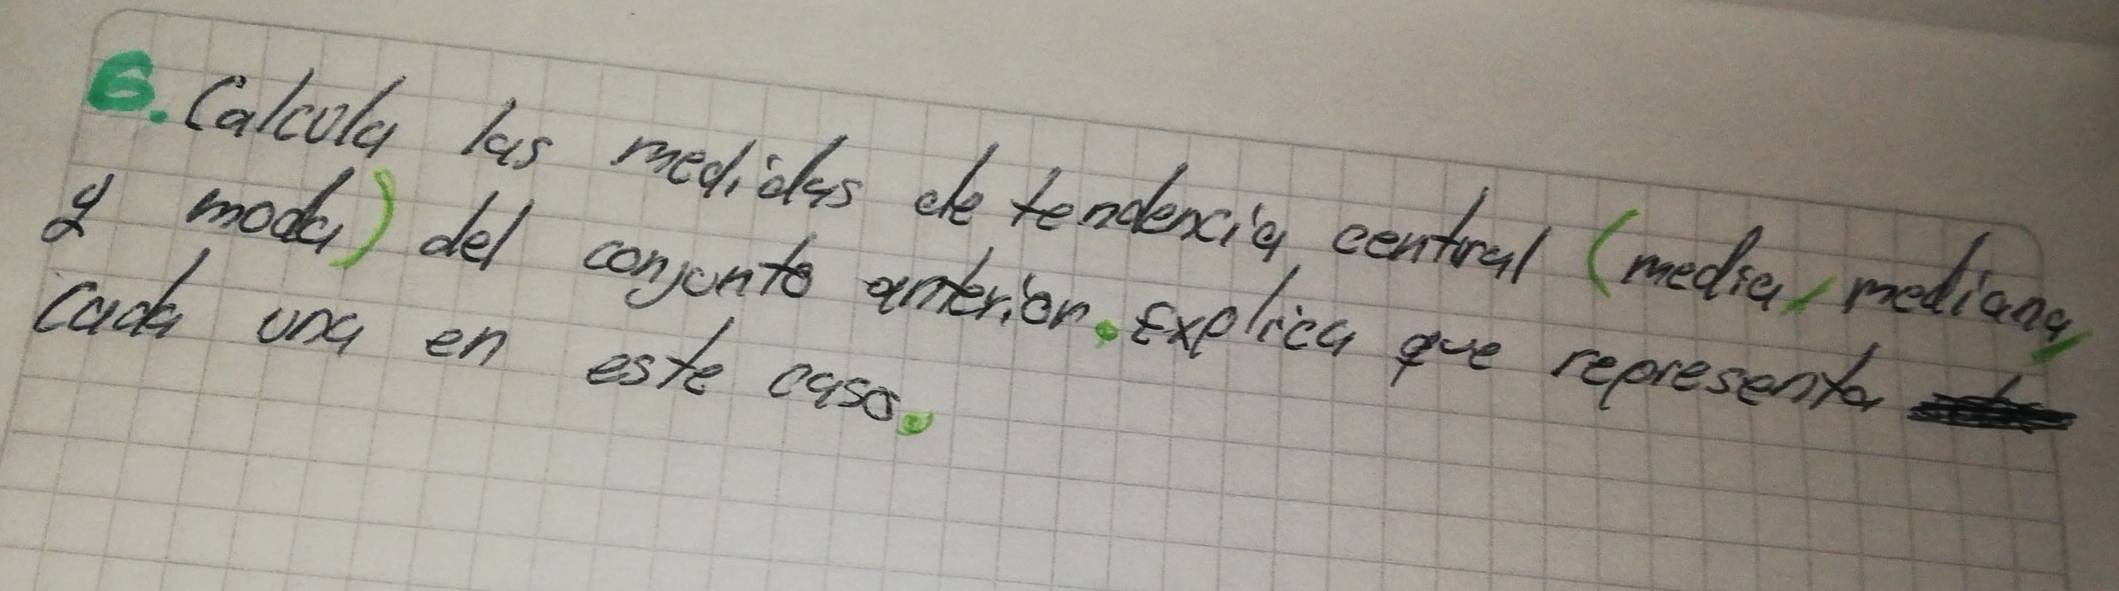 6. Calcula las medidas de tendencia central (media, mediana,
y moda) del conjunto anterior. Explica que representa
cada una en este caso.